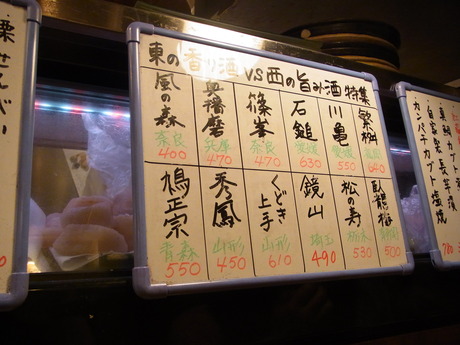 栗せんべい
東の香り酒 VS 西の旨み酒 特集
風の森
奈良
400
奥播磨
兵庫
470
篠峯
奈良
470
石鎚
愛媛
630
川亀
愛媛
550
繁桝
640
鳩正宗
青森
550
秀鳳
山形
450
くどき上手
山形
610
鏡山
埼玉
490
松の寿
栃木
530
臥龍梅
500
自家製長芋漬
カンパチカブト塩焼